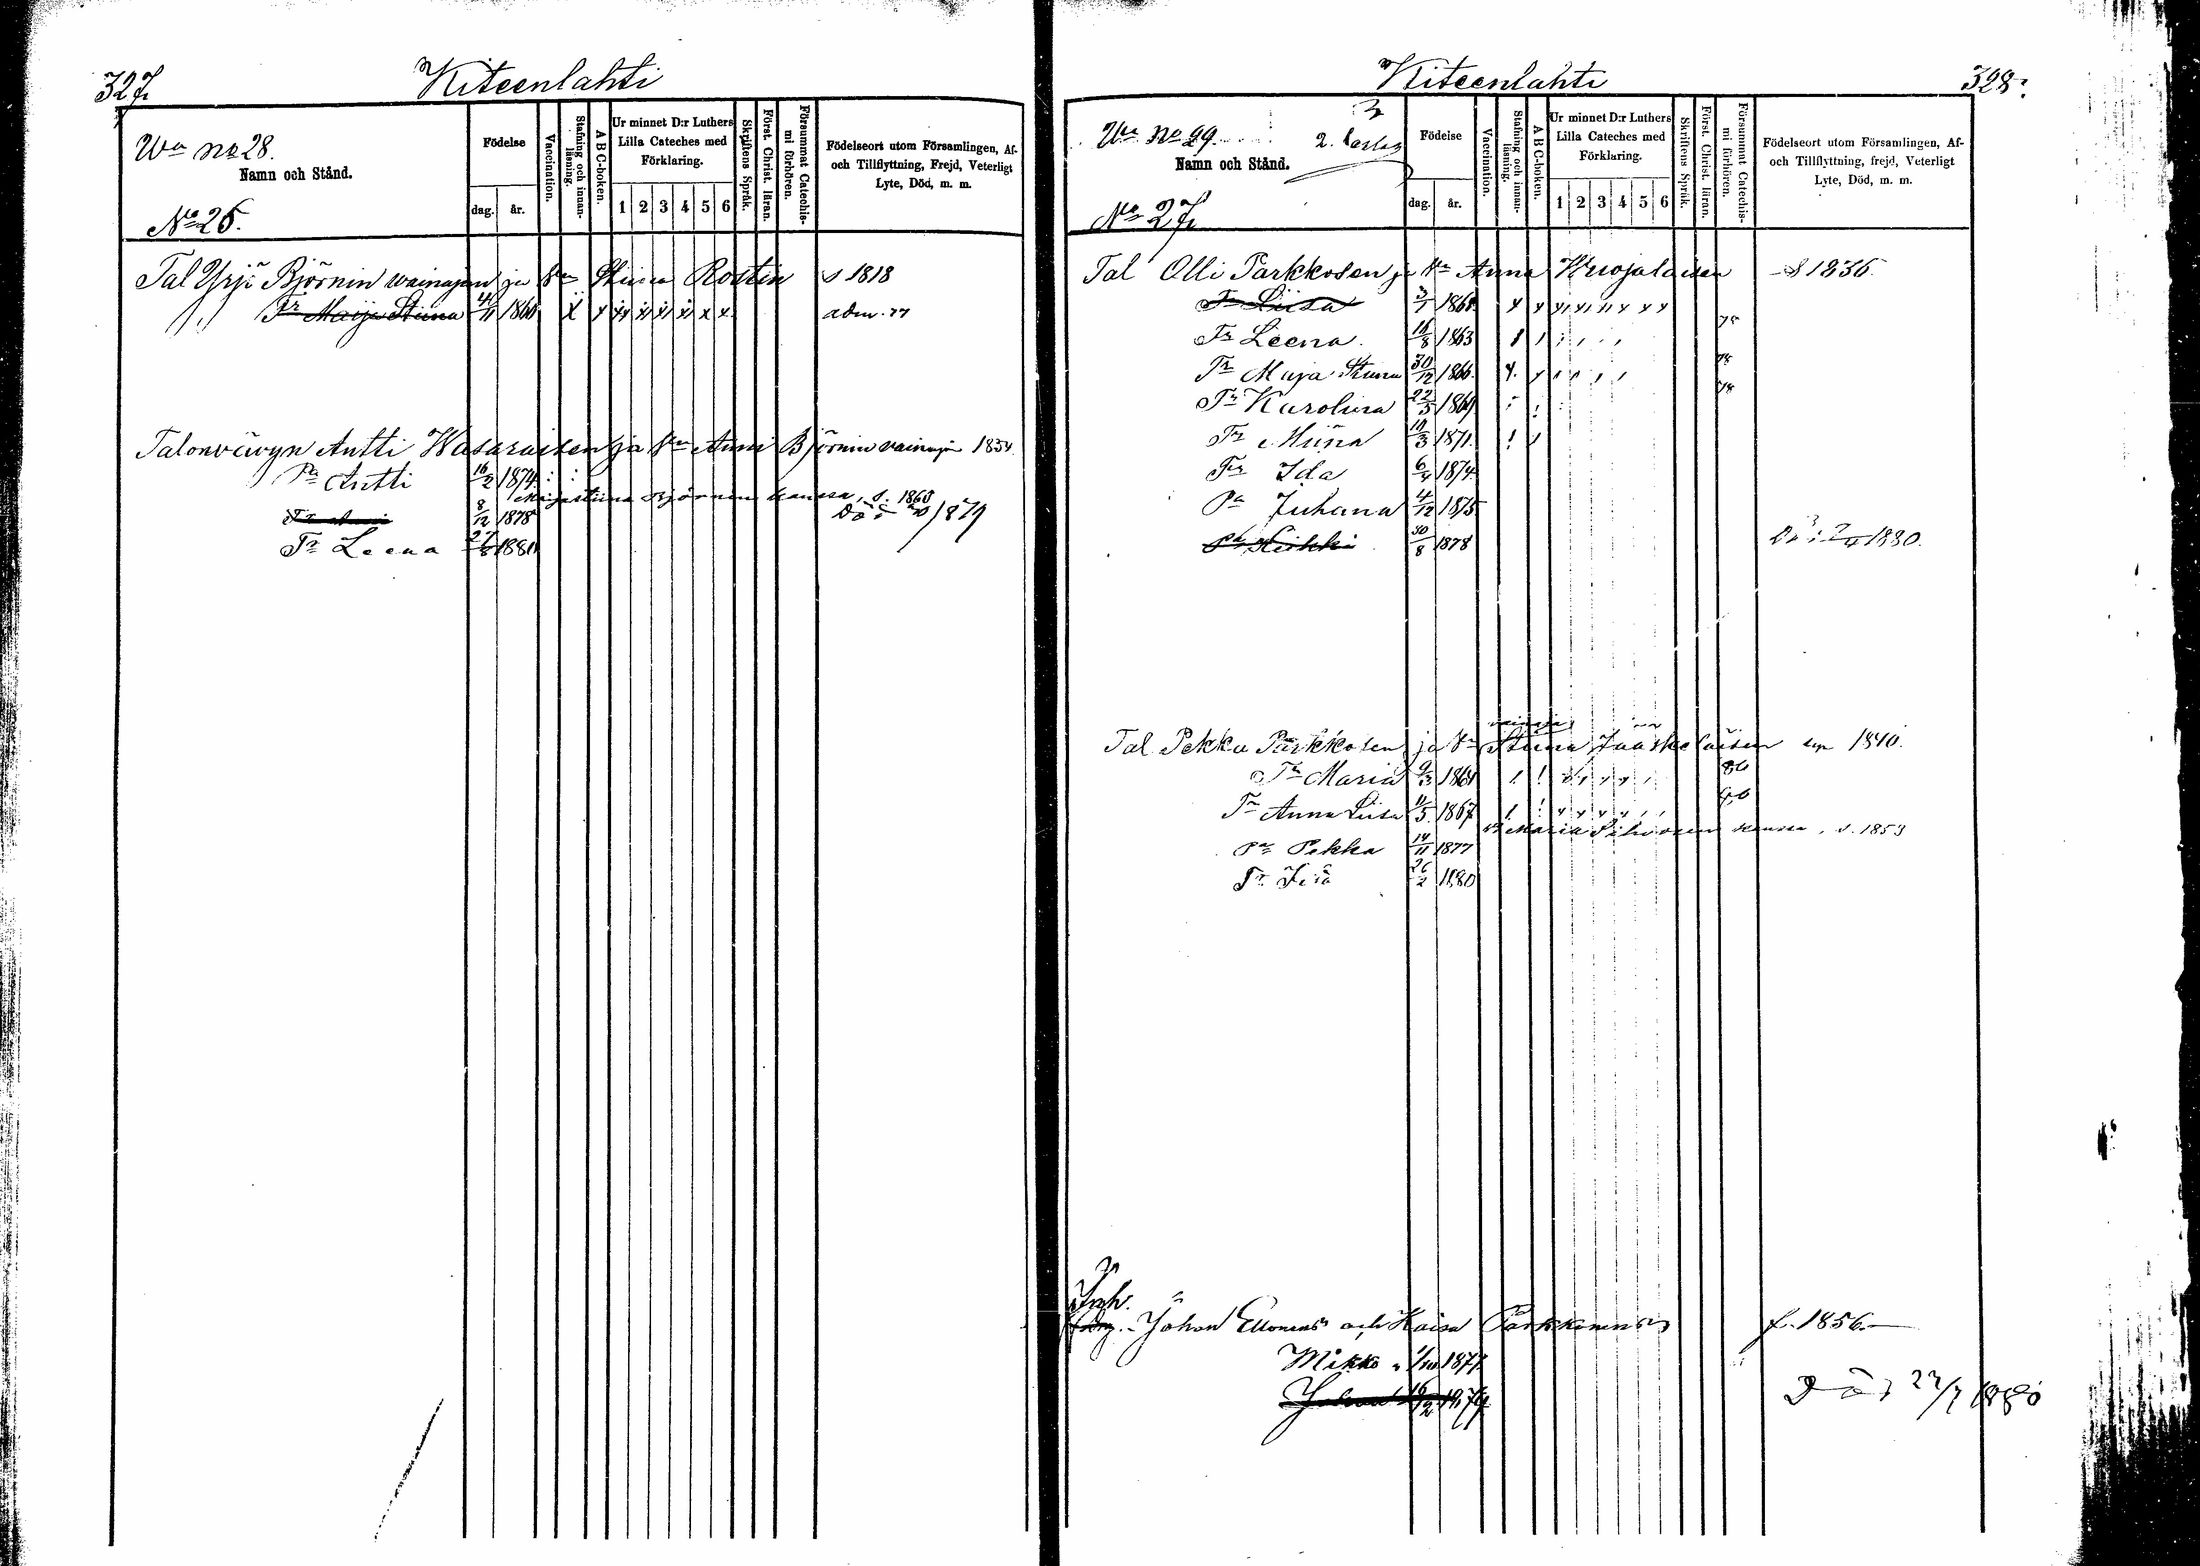 327.
Kiteenlahti
Wa no 28.
Namn och Stånd.
No 26.
Födelse
dag.
år.
Vaccination.
Stafning och innan-läsning.
ABC-boken.
Ur minnet D:r Luthers
Lilla Cateches med
Förklaring.
1 2 3 4 5 6
Skriftens Språk.
Först. Christ. läran.
Försummat Catechis-mi förhören.
Födelseort utom Församlingen, Af-
och Tillflyttning, Frejd, Veterligt
Lyte, Död, m. m.
Tal Yrjö Björnin wainajan ja Vn Stiina Rostin s 1818
Tr Maija Stiina 4/11 1860 x x x x x x x x adm. 77
Talonvävyn Antti Wasaraisen ja Vn Anni Björnin wainaja 1834.
Pa Antti 16/2 1874
Maijastiina Björnin kanssa, s. 1860
8/12 1878 1879
Tr Leena 1881
Kiteenlahti
328.
Wa No 29.
Namn och Stånd.
No 27.
Födelse
dag.
år.
Vaccination.
Stafning och innan-läsning.
ABC-boken.
Ur minnet D:r Luthers
Lilla Cateches med
Förklaring.
1 2 3 4 5 6
Skriftens Språk.
Först. Christ. läran.
Försummat Catechis-mi förhören.
Födelseort utom Församlingen, Af-
och Tillflyttning, frejd, Veterligt
Lyte, Död, m. m.
Tal Olli Parkkosen ja Vn Anna Kuojalaisen s 1836.
Tr Liisa 3/1 1860
Tr Leena 16/8 1863 78
Tr Maja Stiina 30/12 1866 78
Tr Karolina 22/5 1869 78
Tr Miina 10/3 1871
Tr Ida 6/4 1874
Pa Juhana 4/12 1875
Pa Heikki 30/8 1878 1880.
wainaja
Tal Pekka Parkkosen ja Vn Stiina Jääskeläisen 1840.
Tr Maria 9/3 1864 80
Tr Anna Liisa 11/5 1867 80
Maria Silvosen kanssa, s. 1853
Pa Pekka 14/11 1877
Tr 26/2 1880
Inh.
Johan Ellonens och Kaisa Parkkonens f. 1856.
Mikko 1/10 1877
Johan 16/2 1879 Död 27/7 1880